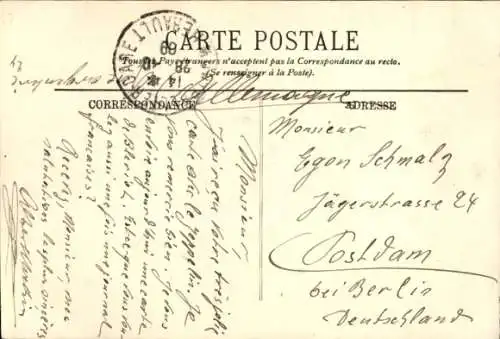 CARTE POSTALE
Tous les Pays étrangers n'acceptent pas la Correspondance au recto.
(Se renseigner à la Poste).
Allemagne
CORRESPONDANCE
ADRESSE
Monsieur,
J'ai reçu votre très jolie
carte avec le Zeppelin. Je
vous remercie bien. Je vous
envoie aujourd'hui une carte
de
lez aussi une fois une journal
français?
Recevez, Monsieur, mes
salutations les plus sincères
Albert
Monsieur
Egon Schmalz
Jägerstrasse 24
Postdam
bei Berlin
Deutschland
HERAULT
14
28
09